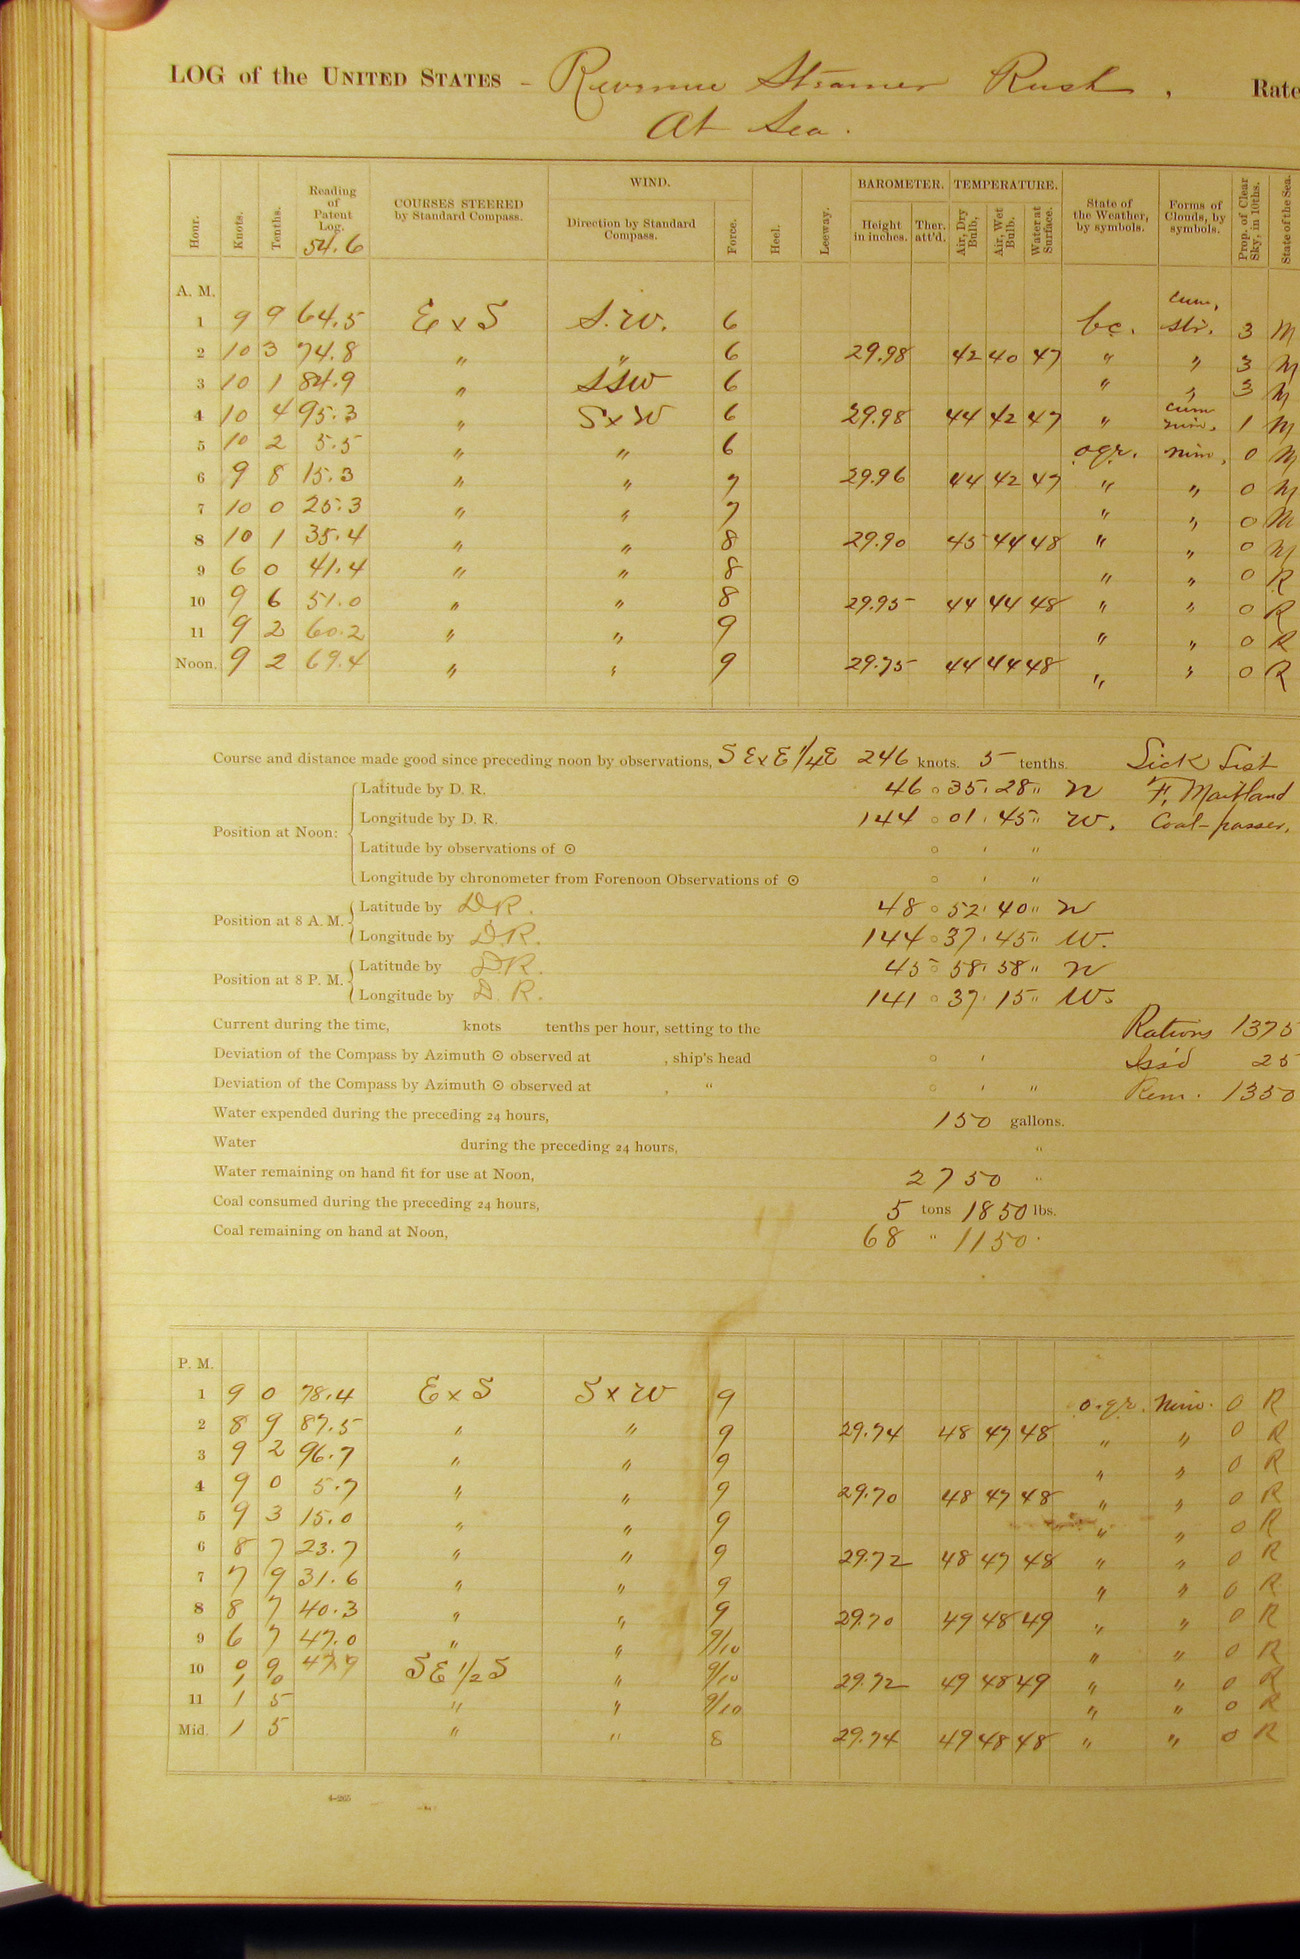 LOG of the UNITED STATES - Revenue Steamer Rush, Rate
At Sea.
Hour. Knots. Tenths. Reading of Patent Log. 54.6 COURSES STEERED by Standard Compass. WIND. Direction by Standard Compass. Force. Heel. Leeway. BAROMETER. Height in inches. Ther. att'd. TEMPERATURE. Air, Dry Bulb, Air, Wet Bulb. Water at Surface. State of the Weather, by symbols. Forms of Clouds, by symbols. Prop. of Clear Sky, in 10ths. State of the Sea.
A. M.
1 9 9 64.5 E x S S.W. 6 bc. cum. str. 3 M
2 10 3 74.8 " " 6 29.98 42 40 47 " " 3 M
3 10 1 84.9 " SSW 6 " " 3 M
4 10 4 95.3 " S x W 6 29.98 44 42 47 " cum nim. 1 M
5 10 2 5.5 " " 6 ogr. nim. 0 M
6 9 8 15.3 " " 7 29.96 44 42 47 " " 0 M
7 10 0 25.3 " " 7 " " 0 M
8 10 1 35.4 " " 8 29.90 45 44 48 " " 0 M
9 6 0 41.4 " " 8 " " 0 R
10 9 6 51.0 " " 8 29.95 44 44 48 " " 0 R
11 9 2 60.2 " " 9 " " 0 R
Noon. 9 2 69.4 " " 9 29.75 44 44 48 " " 0 R
Course and distance made good since preceding noon by observations, S E x E 1/4 E 246 knots. 5 tenths. Sick List
Position at Noon: Latitude by D. R. 46 ° 35 ' 28 " N F. Maitland
Longitude by D. R. 144 ° 01 ' 45 " W. Coal-passer,
Latitude by observations of ☉ ° ' "
Longitude by chronometer from Forenoon Observations of ☉ ° ' "
Position at 8 A. M. Latitude by D R. 48 ° 52 ' 40 " N
Longitude by D.R. 144 ° 37 ' 45 " W.
Position at 8 P. M. Latitude by DR. 45 ° 58 ' 58 " N
Longitude by D. R. 141 ° 37 ' 15 " W.
Current during the time, knots tenths per hour, setting to the Rations 1375
Deviation of the Compass by Azimuth ☉ observed at , ship's head ° ' Iss'd 25
Deviation of the Compass by Azimuth ☉ observed at , " ° ' " Rem. 1350
Water expended during the preceding 24 hours, 150 gallons.
Water during the preceding 24 hours, "
Water remaining on hand fit for use at Noon, 2750 "
Coal consumed during the preceding 24 hours, 5 tons 1850 lbs.
Coal remaining on hand at Noon, 68 " 1150
P. M.
1 9 0 78.4 E x S S x W 9 o.gr. nim. 0 R
2 8 9 87.5 " " 9 29.74 48 47 48 " " 0 R
3 9 2 96.7 " " 9 " " 0 R
4 9 0 5.7 " " 9 29.70 48 47 48 " " 0 R
5 9 3 15.0 " " 9 " " 0 R
6 8 7 23.7 " " 9 29.72 48 47 48 " " 0 R
7 7 9 31.6 " " 9 " " 0 R
8 8 7 40.3 " " 9 29.70 49 48 49 " " 0 R
9 6 7 47.0 " " 9/10 " " 0 R
10 0 9 47.9 SE 1/2 S " 9/10 29.72 49 48 49 " " 0 R
11 1 5 " " 9/10 " " 0 R
Mid. 1 5 " " 8 29.74 49 48 48 " " 0 R
4-265